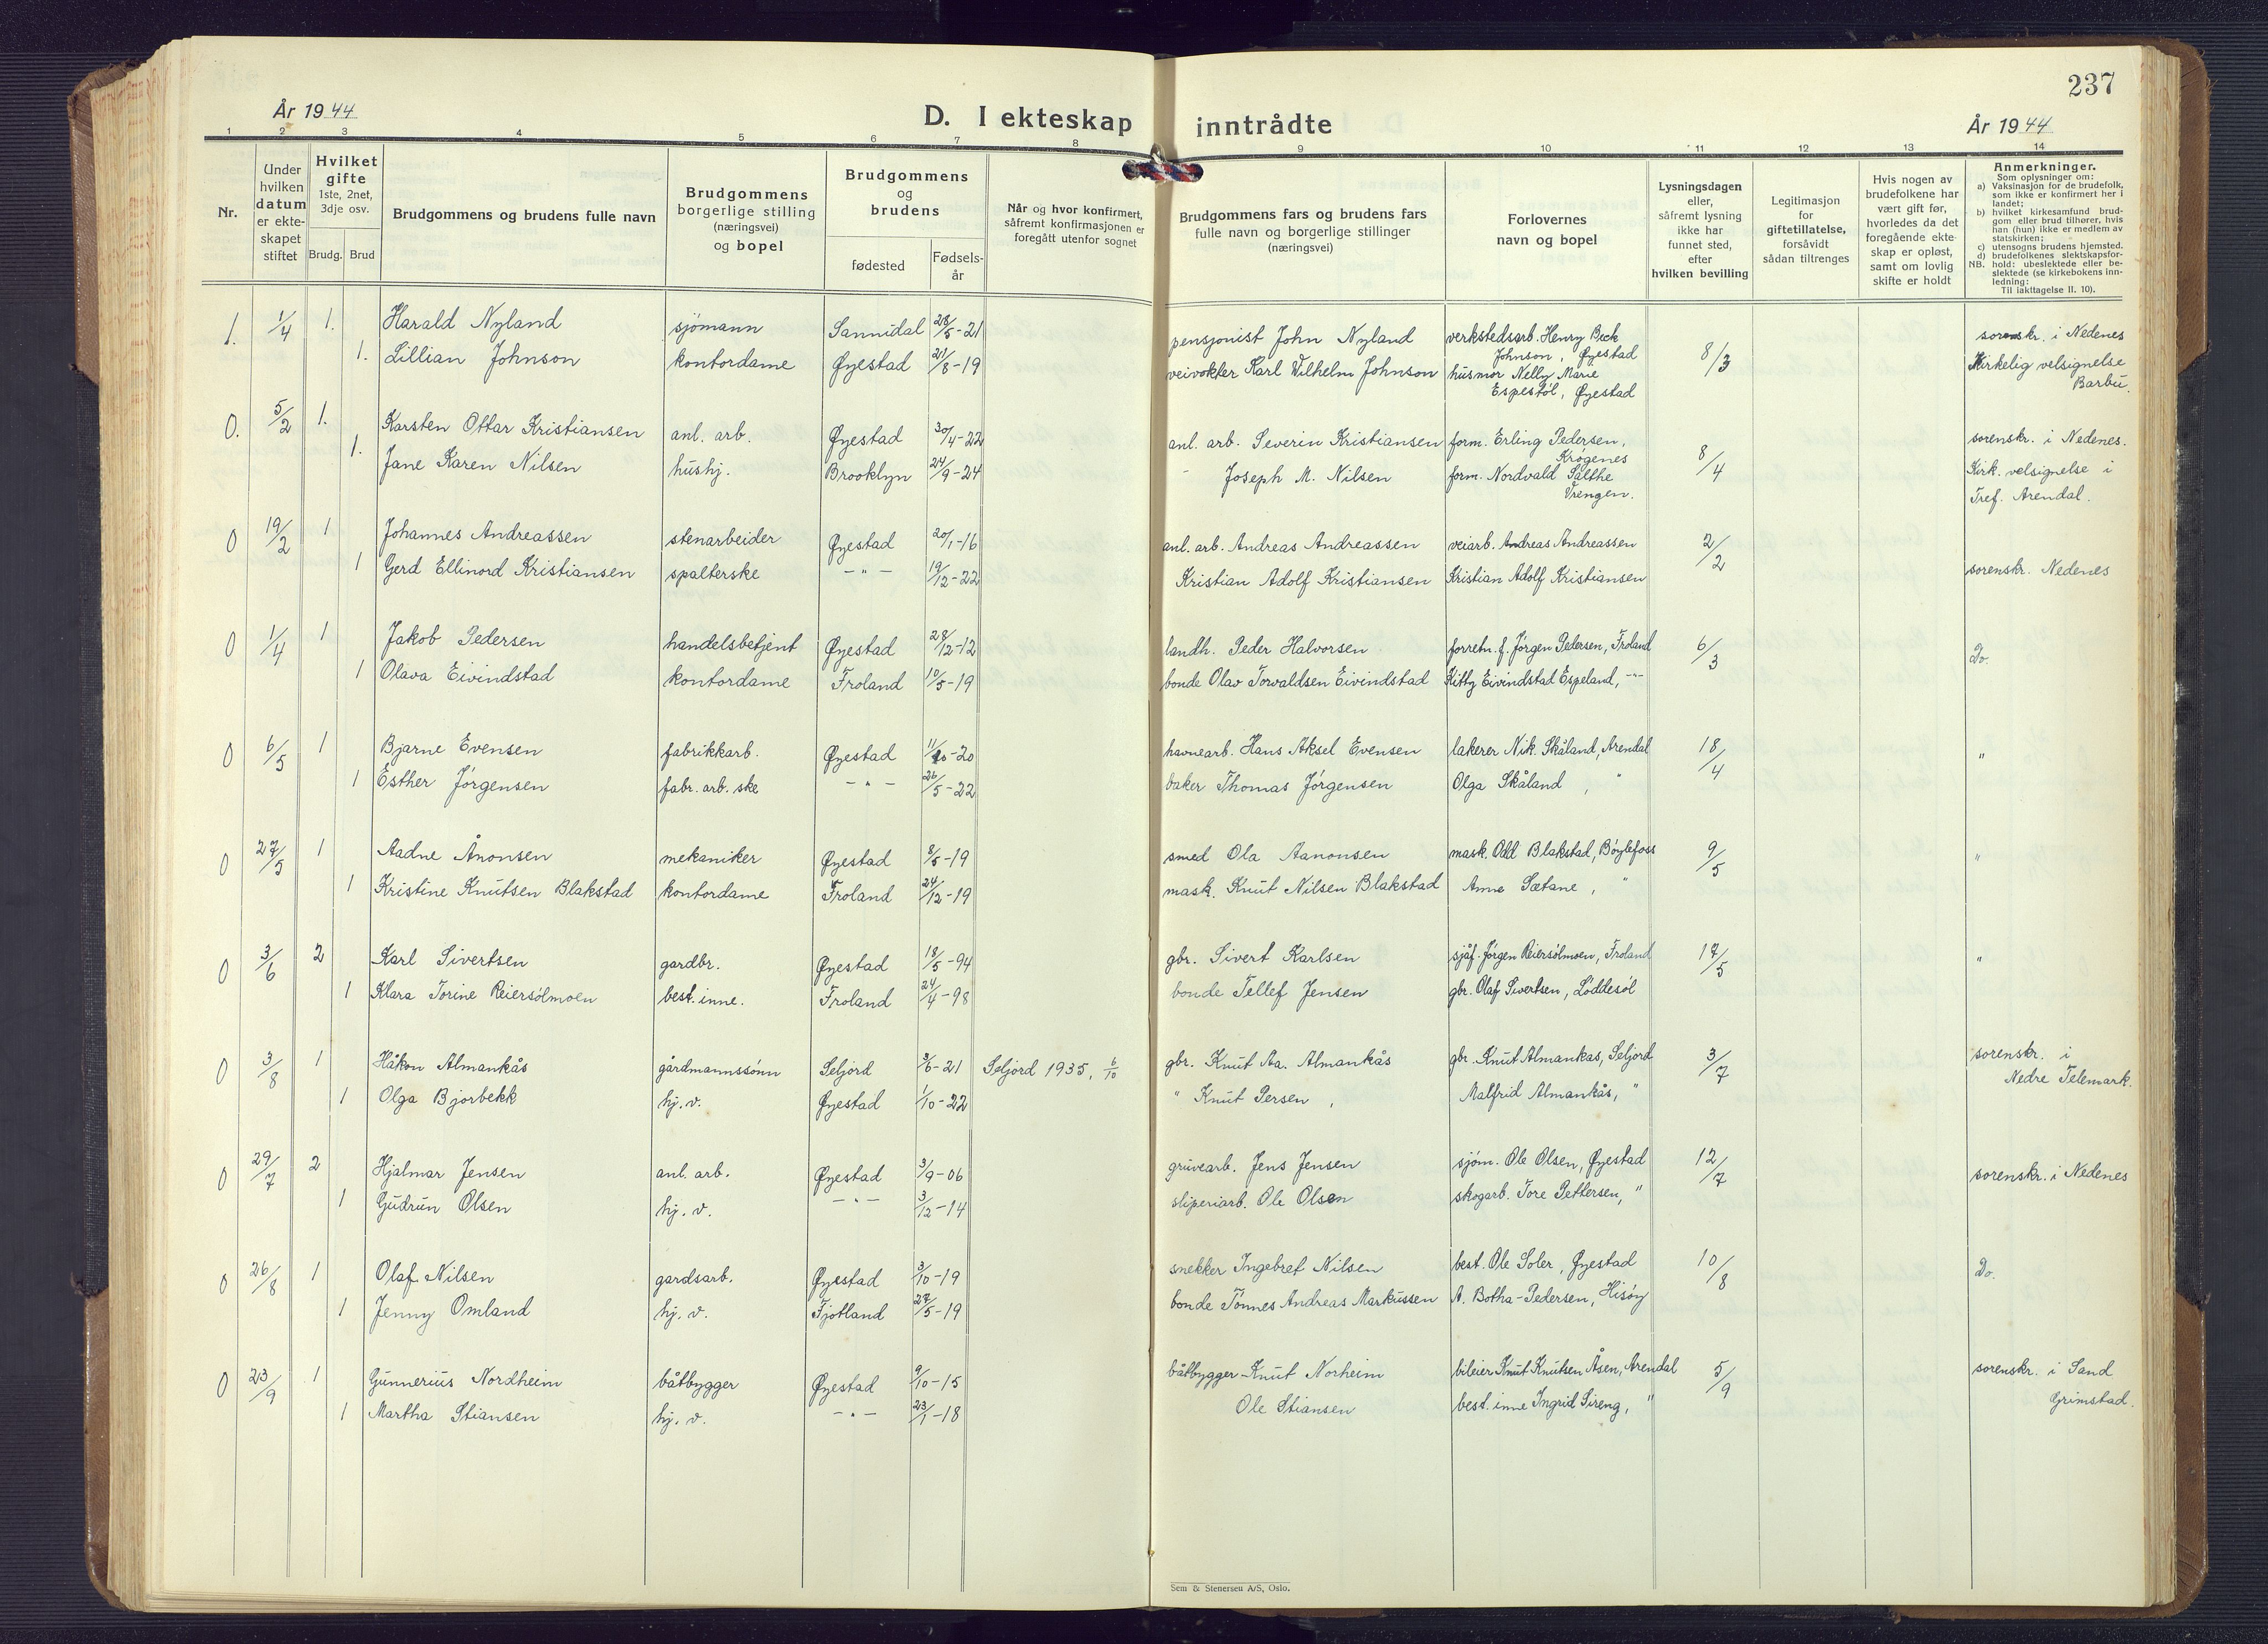 237
År 1944
D. I ekteskap inntrådte
År 1944
1 2 3 4 5 6 7 8 9 10 11 12 13 14
Nr.
Under hvilken datum er ekteskapet stiftet
Hvilket gifte 1ste, 2net, 3dje osv.
Brudg. Brud
Brudgommens og brudens fulle navn
Brudgommens borgerlige stilling (næringsvei) og bopel
Brudgommens og brudens
fødested
Fødsels-år
Når og hvor konfirmert, såfremt konfirmasjonen er foregått utenfor sognet
Brudgommens fars og brudens fars fulle navn og borgerlige stillinger (næringsvei)
Forlovernes navn og bopel
Lysningsdagen eller, såfremt lysning ikke har funnet sted, efter hvilken bevilling
Legitimasjon for giftetillatelse, forsåvidt sådan tiltrenges
Hvis nogen av brudefolkene har vært gift før, hvorledes da det foregående ekteskap er opløst, samt om lovlig skifte er holdt
Anmerkninger.
Som oplysninger om:
a) Vaksinasjon for de brudefolk, som ikke er konfirmert her i landet;
b) hvilket kirkesamfund brudgom eller brud tilhører, hvis han (hun) ikke er medlem av statskirken;
c) utensogns brudens hjemsted.
d) brudefolkenes slektskapsforhold: ubeslektede eller beslektede (se kirkebokens innledning:
NB. Til iakttagelse II. 10).
1. 1/4 1. Harald Nyland sjömann Sannidal 28/5-21 pensjonist John Nyland verkstedsarb. Henry Beck Johnson, Øyestad 8/3 sorenskr. i Nedenes
1. Lillian Johnson kontordame Øyestad 21/8-19 veivokter Karl Wilhelm Johnson husmor Nelly Marie Espestöl, Øyestad Kirkelig velsignelse Barbu.
0. 5/2 1. Karsten Ottar Kristiansen anl. arb. Øyestad 30/4-22 anl. arb. Severin Kristiansen form. Erling Pedersen, Krøgenes 8/4 sorenskr. i Nedenes.
1. Jane Karen Nilsen hushj. Brooklyn 24/9-24 - Joseph M. Nilsen form. Nordvald Salthe Trengen. Kirk. velsignelse i Tref. Arendal.
0 19/2 1 Johannes Andreassen stenarbeider Øyestad 20/1-16 anl. arb. Andreas Andreassen veiarb. Andreas Andreassen 2/2
1 Gerd Ellinord Kristiansen spalterske -"- 19/12-22 Kristian Adolf Kristiansen Kristian Adolf Kristiansen sorenskr. Nedenes
0 1/4 1 Jakob Pedersen handelsbetjent Øyestad 28/12-12 landh. Peder Halvorsen forretn. f. Jörgen Pedersen, Froland 6/3 Do.
1 Olava Eivindstad kontordame Froland 10/5-19 bonde Olav Torvaldsen Eivindstad Kitty Eivindstad Espeland, -"-
0 6/5 1 Bjarne Evensen fabrikkarb. Øyestad 11/10-20 havnearb. Hans Aksel Evensen lakerer Nik. Skåland, Arendal 18/4 "
1 Esther Jörgensen fabr. arb. ske -"- 26/5-22 baker Thomas Jörgensen Olga Skåland, "
0 27/5 1 Aadne Ånonsen mekaniker Øyestad 8/5-19 smed Ola Aanonsen mask. Odd Blakstad, Böylefoss 9/5 "
1 Kristine Knutsen Blakstad kontordame Froland 24/12-19 mask. Knut Nilsen Blakstad Anne Sætane, "
0 3/6 2 Karl Sivertsen gardbr. Øyestad 18/5-94 gbr. Sivert Karlsen sjåf. Jörgen Reiersölmoen, Froland 17/5 "
1 Klara Torine Reiersölmoen best. inne. Froland 24/4-98 bonde Tellef Jensen gbr. Olaf Sivertsen, Löddesöl
0 3/8 1 Håkon Almankås gårdmannssönn Seljord 3/6-21 Seljord 1935, 6/10 gbr. Knut Aa. Almankås gbr. Knut Almankas, Seljord 3/7 sorenskr. i Nedre Telemark.
1 Olga Bjorbekk hj. v. Øyestad 1/10-22 " Knut Persen, Malfrid Almankås, "
0 29/7 2 Hjalmar Jensen anl. arb. Øyestad 3/9-06 gruvearb. Jens Jensen sjöm. Ole Olsen, Øyestad 12/7 sorenskr. i Nedenes
1 Gudrun Olsen hj. v. -"- 3/12-14 sliperiarb. Ole Olsen skogarb. Tore Pettersen, "
0 26/8 1 Olaf Nilsen gardsarb. Øyestad 3/10-19 snekker Ingebret Nilsen best. Ole Soler, Øyestad 10/8 Do.
1 Jenny Omland hj. v. Fjotland 27/5-19 bonde Tönnes Andreas Markussen A. Botha-Pedersen, Hisöy
0 23/9 1 Gunnerius Nordheim båtbygger Øyestad 9/10-15 båtbygger Knut Norheim bileier Knut Knutsen Åsen, Arendal 5/9 sorenskr. i Sand
1 Martha Stiansen hj. v. -"- 23/1-18 Ole Stiansen best. inne Ingrid Sireng, " Grimstad.
Sem & Stenersen A/S, Oslo.